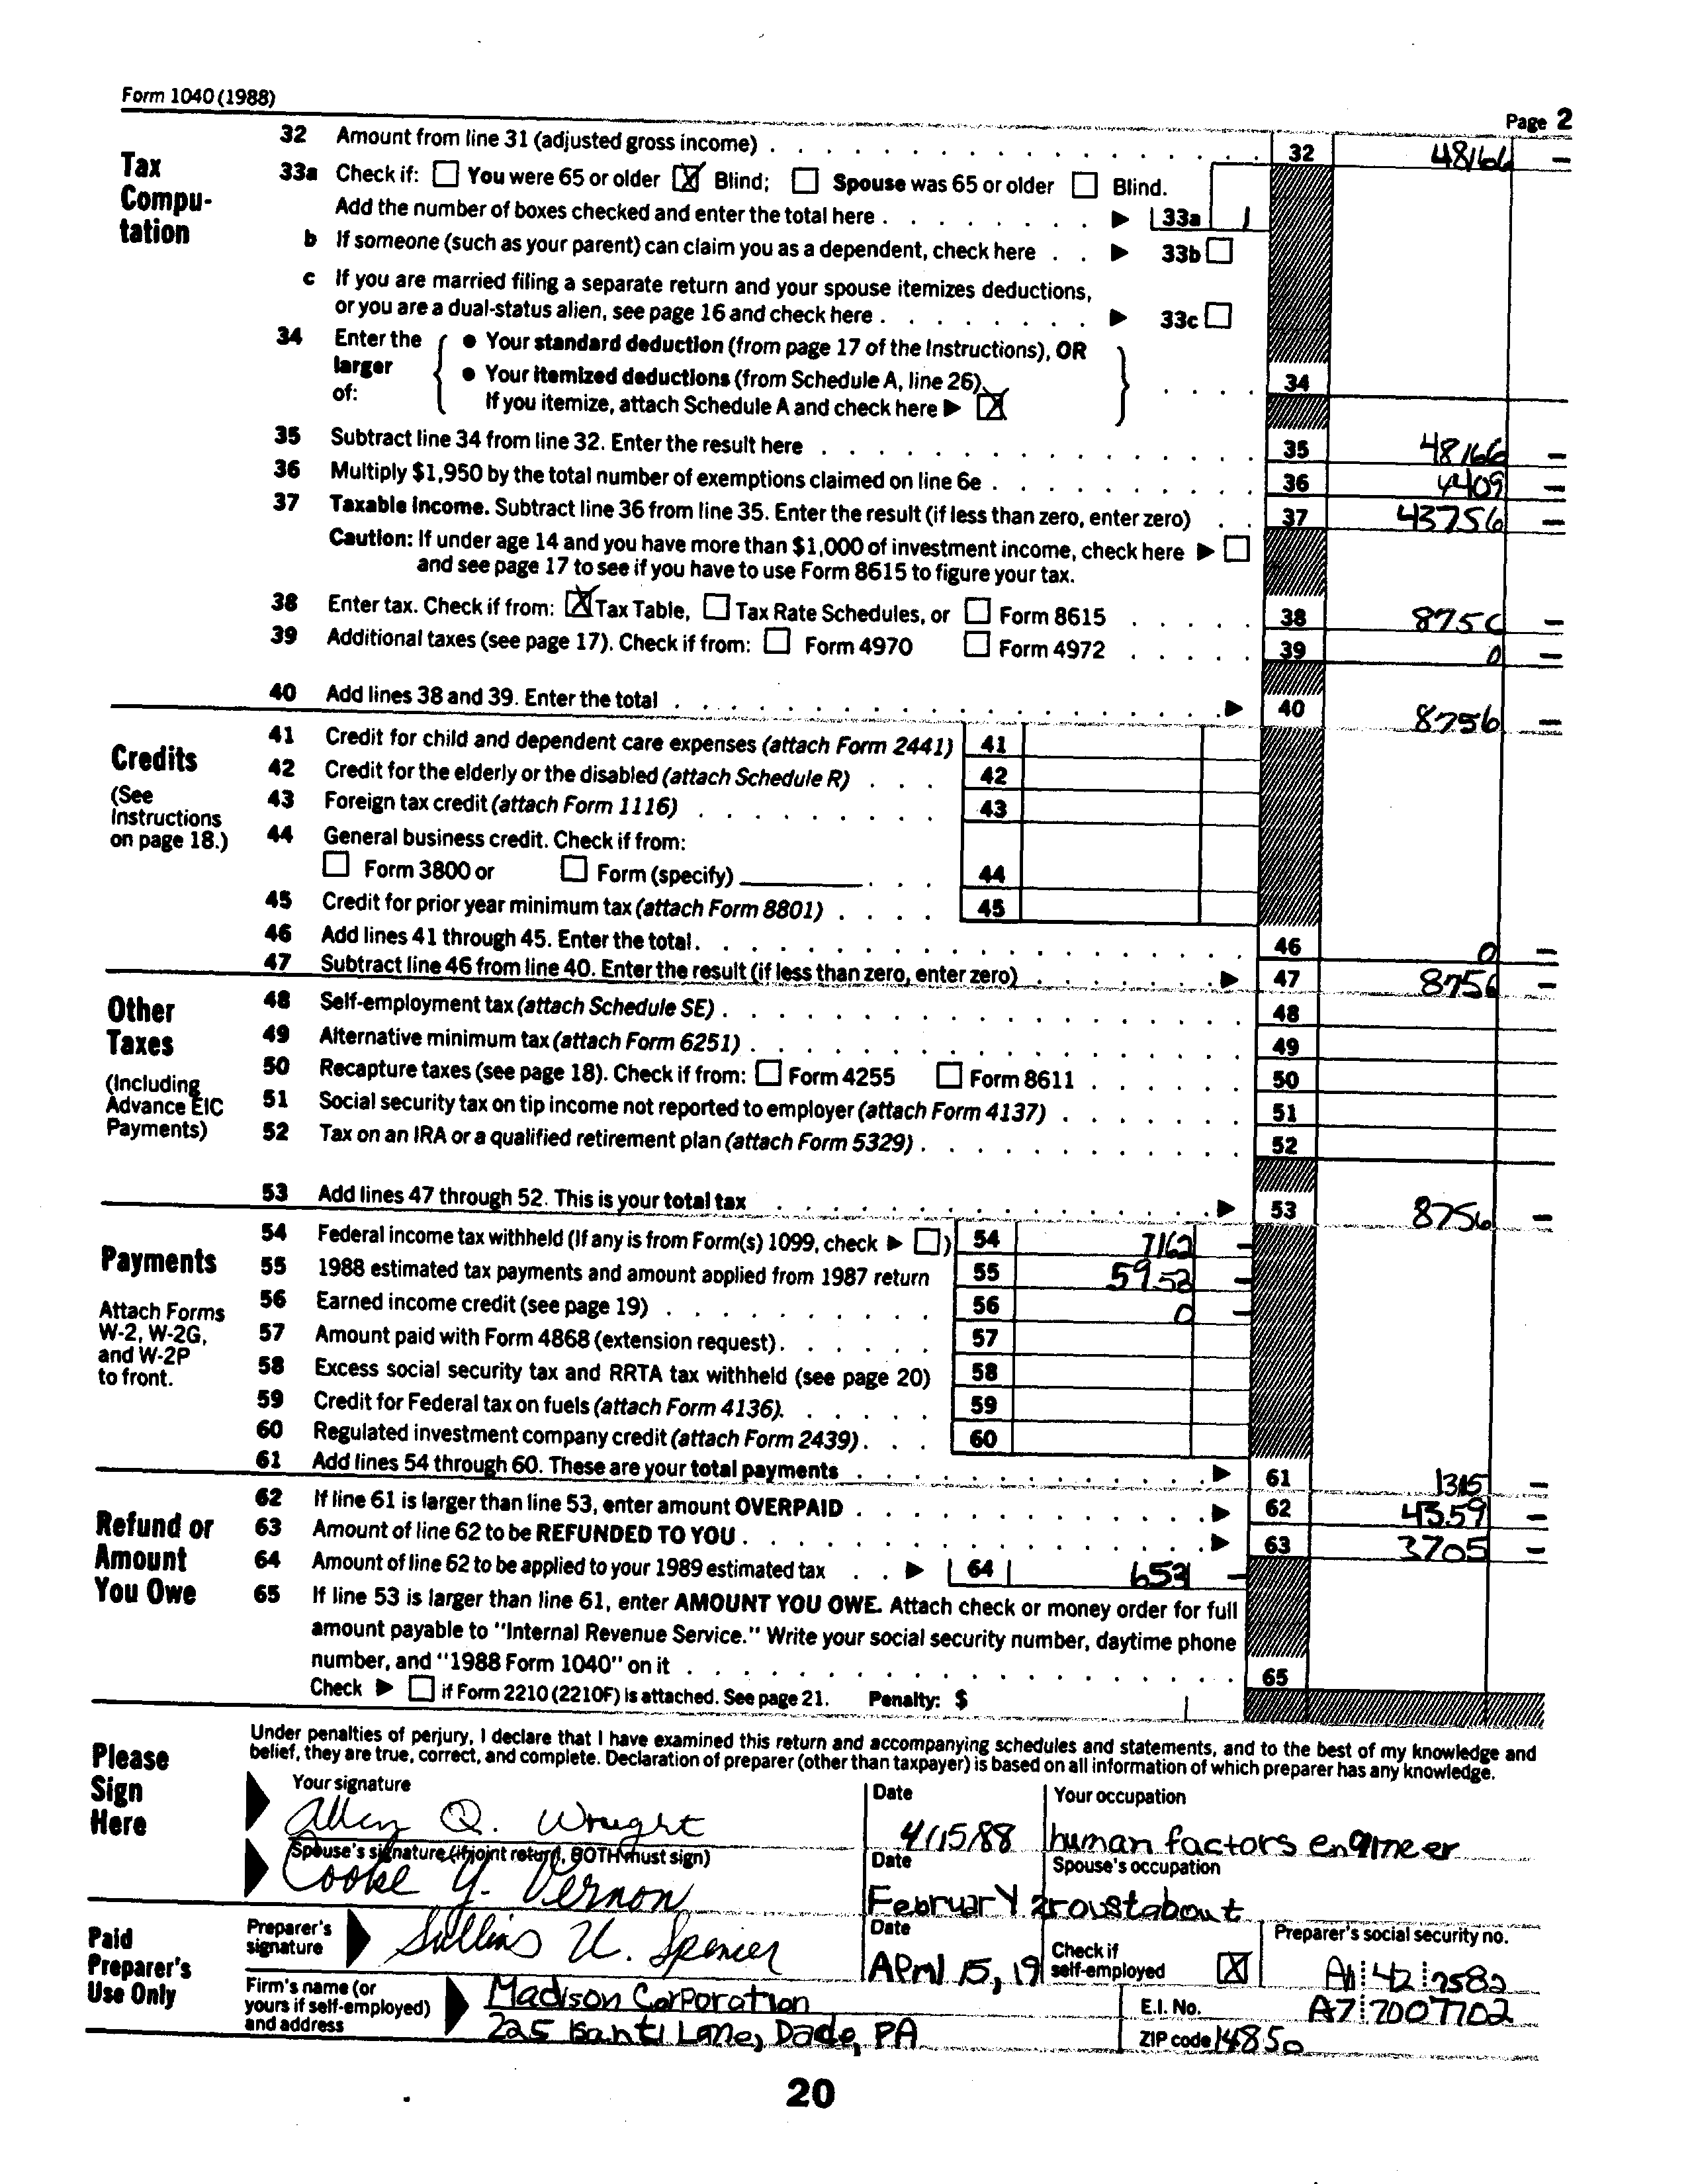 Form 1040 (1988)
Page 2
Tax Computation
32 Amount from line 31 (adjusted gross income) 32 48166 —
33a Check if: You were 65 or older X Blind; Spouse was 65 or older Blind.
Add the number of boxes checked and enter the total here 33a 1
b If someone (such as your parent) can claim you as a dependent, check here 33b
c If you are married filing a separate return and your spouse itemizes deductions,
or you are a dual-status alien, see page 16 and check here 33c
34 Enter the larger of:
• Your standard deduction (from page 17 of the Instructions), OR
• Your itemized deductions (from Schedule A, line 26).
If you itemize, attach Schedule A and check here X
34
35 Subtract line 34 from line 32. Enter the result here 35 48166 —
36 Multiply $1,950 by the total number of exemptions claimed on line 6e 36 4409 —
37 Taxable income. Subtract line 36 from line 35. Enter the result (if less than zero, enter zero) 37 43756 —
Caution: If under age 14 and you have more than $1,000 of investment income, check here
and see page 17 to see if you have to use Form 8615 to figure your tax.
38 Enter tax. Check if from: X Tax Table, Tax Rate Schedules, or Form 8615 38 8756 —
39 Additional taxes (see page 17). Check if from: Form 4970 Form 4972 39 0 —
40 Add lines 38 and 39. Enter the total 40 8756 —
Credits
(See Instructions on page 18.)
41 Credit for child and dependent care expenses (attach Form 2441) 41
42 Credit for the elderly or the disabled (attach Schedule R) 42
43 Foreign tax credit (attach Form 1116) 43
44 General business credit. Check if from:
Form 3800 or Form (specify) 44
45 Credit for prior year minimum tax (attach Form 8801) 45
46 Add lines 41 through 45. Enter the total 46 0 —
47 Subtract line 46 from line 40. Enter the result (if less than zero, enter zero) 47 8756 —
Other Taxes
(Including Advance EIC Payments)
48 Self-employment tax (attach Schedule SE) 48
49 Alternative minimum tax (attach Form 6251) 49
50 Recapture taxes (see page 18). Check if from: Form 4255 Form 8611 50
51 Social security tax on tip income not reported to employer (attach Form 4137) 51
52 Tax on an IRA or a qualified retirement plan (attach Form 5329) 52
53 Add lines 47 through 52. This is your total tax 53 8756 —
Payments
Attach Forms W-2, W-2G, and W-2P to front.
54 Federal income tax withheld (If any is from Form(s) 1099, check ) 54 7162 —
55 1988 estimated tax payments and amount applied from 1987 return 55 5952 —
56 Earned income credit (see page 19) 56 0 —
57 Amount paid with Form 4868 (extension request) 57
58 Excess social security tax and RRTA tax withheld (see page 20) 58
59 Credit for Federal tax on fuels (attach Form 4136) 59
60 Regulated investment company credit (attach Form 2439) 60
61 Add lines 54 through 60. These are your total payments 61 —
Refund or Amount You Owe
62 If line 61 is larger than line 53, enter amount OVERPAID 62 4359 —
63 Amount of line 62 to be REFUNDED TO YOU 63 3705 —
64 Amount of line 62 to be applied to your 1989 estimated tax 64 653 —
65 If line 53 is larger than line 61, enter AMOUNT YOU OWE. Attach check or money order for full
amount payable to "Internal Revenue Service." Write your social security number, daytime phone
number, and "1988 Form 1040" on it 65
Check if Form 2210 (2210F) is attached. See page 21. Penalty: $
Please Sign Here
Under penalties of perjury, I declare that I have examined this return and accompanying schedules and statements, and to the best of my knowledge and
belief, they are true, correct, and complete. Declaration of preparer (other than taxpayer) is based on all information of which preparer has any knowledge.
Your signature Date Your occupation
Allen Q. Wright 4/15/88 human factors engineer
Spouse's signature (if joint return, BOTH must sign) Date Spouse's occupation
Cooke Y. Vernon February 2 roustabout
Paid Preparer's Use Only
Preparer's signature Date Check if self-employed X Preparer's social security no.
Sullins U. Spencer April 15, 19 42 7582
Firm's name (or yours if self-employed) and address
Madison Corporation E.I. No. A7 7007702
225 Lane, Dade, PA ZIP code 14850
20